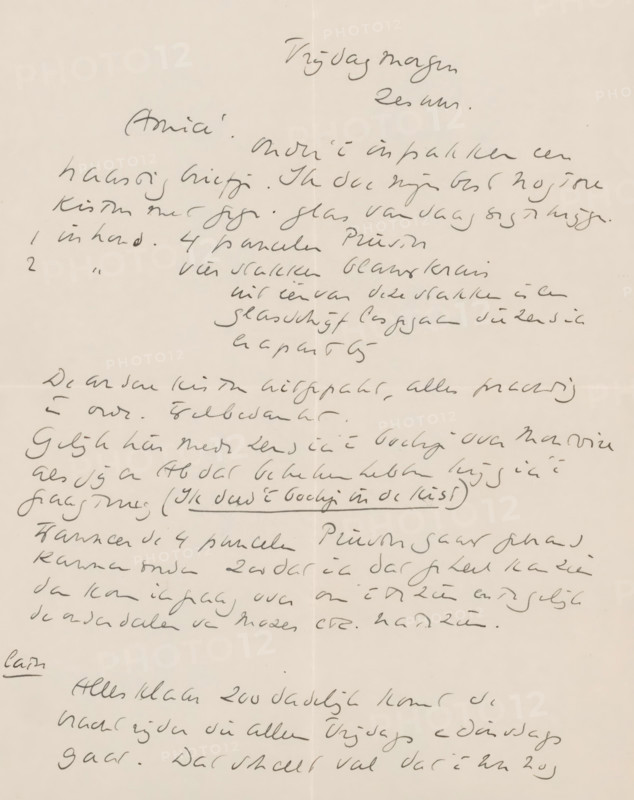 Vrijdag morgen
zes uur.
Amici!
Onder 't inpakken een
haastig briefje. Ik doe mijn best nog two
kisten met gegr. glas vandaag weg te krijgen.
1 inhoud. 4 paneelen Pinston
2 " vier vlakken blauwkruis
uit één van deze vlakken is een
glasschijf losgegaan die zend ik
er apart bij
De andere kisten uitgepakt, alles prachtig
in orde. Wel bedankt.
Gelijk hier mede zend ik 't boekje over
als jij en Ab dat bekeken hebben krijg ik 't
graag terug (Ik deed 't boekje in de kist)
Wanneer de 4 paneelen gaar gebrand
kunnen worden zoodat ik dat geheel kan zien
dan kom ik graag over om 't te zien en tegelijk
de onderdeelen van Mozes enz. na te zien.
Alles klaar zoo dadelijk komt de
vrachtrijder die alleen Vrijdags en Dinsdags
gaat. Dat scheelt veel dat ik hem nog